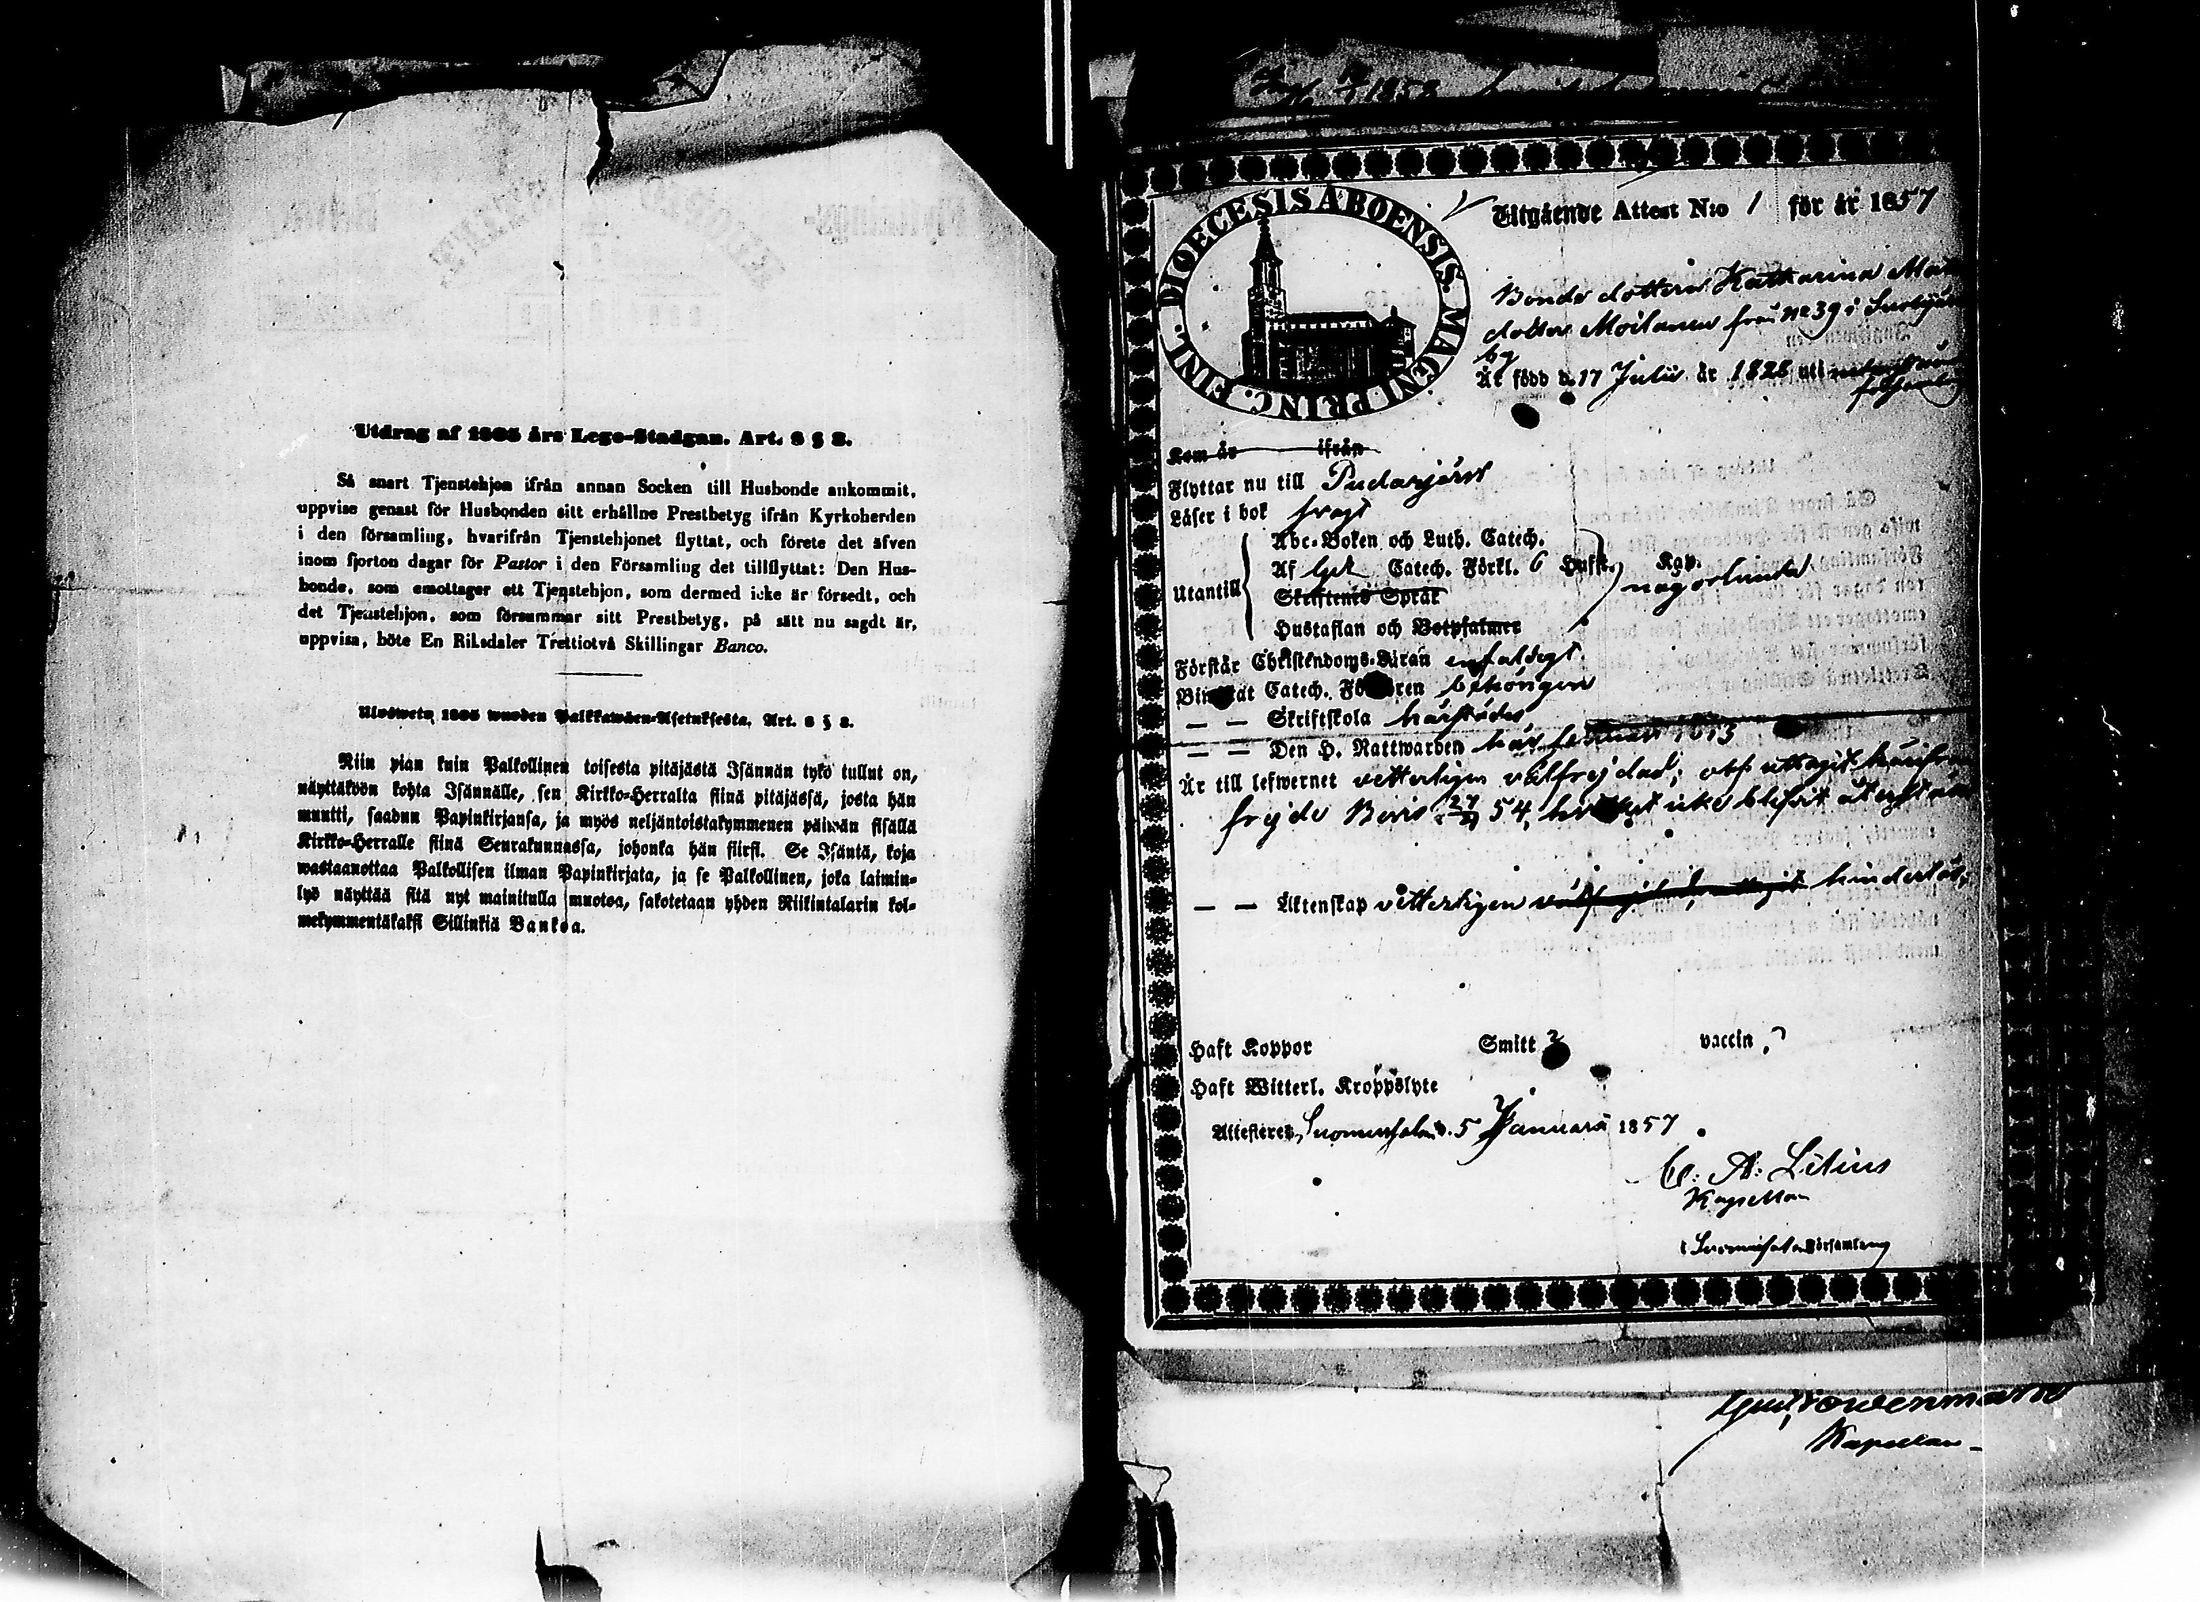 Utdrag af 1805 års Lego-Stadgan. Art. 8 § 8.
Så snart Tjenstehjon ifrån annan Socken till Husbonde ankommit,
uppvise genast för Husbonden sitt erhållne Prestbetyg ifrån Kyrkoherden
i den församling, hvarifrån Tjenstehjonet flyttat, och förete det äfven
inom fjorton dagar för Pastor i den Församling det tillflyttat: Den Hus-
bonde, som emottager ett Tjenstehjon, som dermed icke är försedt, och
det Tjenstehjon, som försummar sitt Prestbetyg, på sätt nu sagdt är,
uppvisa, böte En Riksdaler Trettiotvå Skillingar Banco.
Uloswetu 1805 wuoden Palkkawäen-Asetuksesta. Art. 8 § 8.
Niin pian kuin Palkollinen toisesta pitäjästä Isännän tykö tullut on,
näyttäköön kohta Isännälle, sen Kirkko-Herralta siinä pitäjässä, josta hän
muutti, saadun Papinkirjansa, ja myös neljäntoistakymmenen päiwän sisällä
Kirkko-Herralle siinä Seurakunnassa, johonka hän siirsi. Se Isäntä, koja
wastaanottaa Palkollisen ilman Papinkirjata, ja se Palkollinen, joka laimin-
lyö näyttää sitä nyt mainitulla muotoa, sakotetaan yhden Riikintalarin kol-
mekymmentäkaksi Sillinkiä Bankoa.
1858
DIOECESIS ABOENSIS. MAGNI PRINC. FINL.
Utgående Attest N:o 1 för år 1857
Bonde dottern Katharina
dotter Moilanen från No 39 i
by
Är född d. 17 Julii år 1828 uti
Kom år ifrån
Flyttar nu till Pudasjärvi
Läser i bok svagt
Utantill
Abc-Boken och Luth. Catech.
Af Catech. Förkl. 6 Hufst. Kap.
någorlunda
Skriftenes Språk
Hustaflan och Botpsalmer
Förstår Christendoms-Läran enfaldigt
Bivistat Catech. Förhören behörigen
— — Skriftskola härstädes
— — Den H. Nattwarden
Är till lefwernet vetterligen välfrejdad;
frejde Bevis 54, icke blifvit
— — Äktenskap vetterligen hinderlös,
Haft Koppor Smitt ? vaccin ?
Haft Witterl. Kroppslyte
Attesteres, Suomussalmi d. 5 Januarii 1857
C. A. Lilius
Kapellan
i Suomussalmi Församling
Kapellan